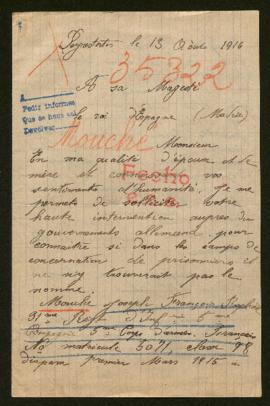 le 13 Août, 1916
35322
A sa Majesté
A
Pedir informes
Que se haga
Devolver
le roi d'Espagne (Madrid)
Mouche
Monsieur
En ma qualité d'épouse et de
mère et connaissant vos
sentiments d'humanité, Je me
permets de solliciter votre
Fecho
haute intervention auprès du
gouvernement allemand pour
connaître si dans les camps de
concentration de prisonniers il
ne s'y trouverait pas le
nommé
Mouche Joseph François
31me Régt d'Inf ie 5me
Compagnie 5me Corps d'armée, Français
No matricule 5071, classe 98
disparu premier Mars 1915 à